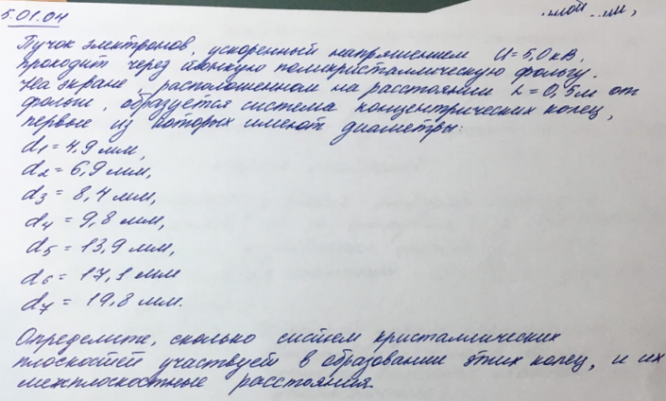 5.01.04
Пучок электронов, ускоренный напряжением U = 5,0 кВ,
проходит через тонкую поликристаллическую фольгу.
На экране, расположенном на расстоянии L = 0,5 м от
фольги, образуется система концентрических колец,
первые из которых имеют диаметры:
d1 = 4,9 мм,
d2 = 6,9 мм,
d3 = 8,4 мм,
d4 = 9,8 мм,
d5 = 13,9 мм,
d6 = 17,1 мм
d7 = 19,8 мм.
Определите, сколько систем кристаллических
плоскостей участвует в образовании этих колец, и их
межплоскостные расстояния.